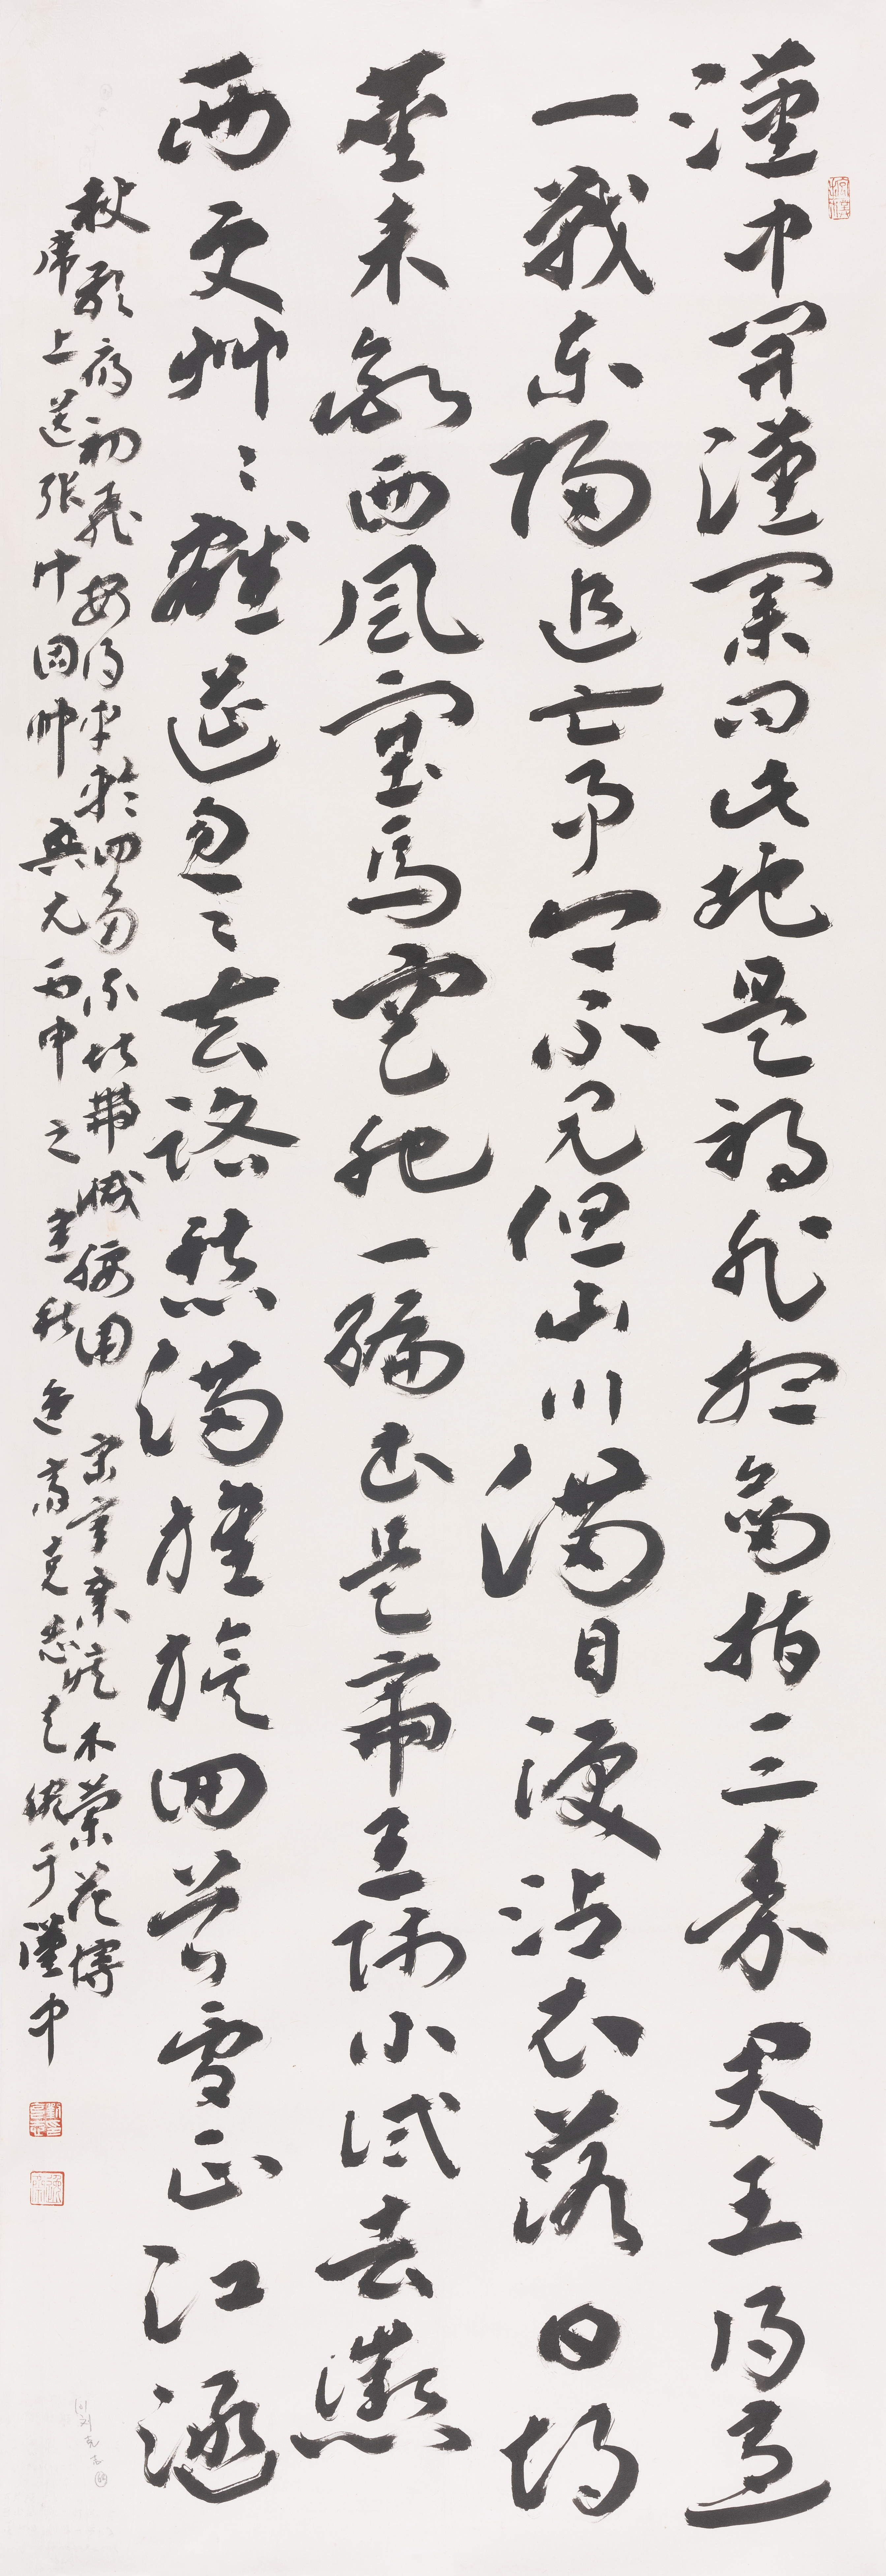 漢中開漢業問此地是耶非想劍指三秦君王得意
一戰東歸追亡事今不見但山川滿目淚沾衣落日胡
塵未斷西風塞馬空肥一編書是帝王師小試去征
西更艸々離筵匆々去路愁滿旌旗回首處正江涵
秋影雁初飛安得車輪四角不堪帶減腰圍 宋辛棄疾木蘭花慢
席上送張仲固帥興元 丙申之秋 克志 于漢中